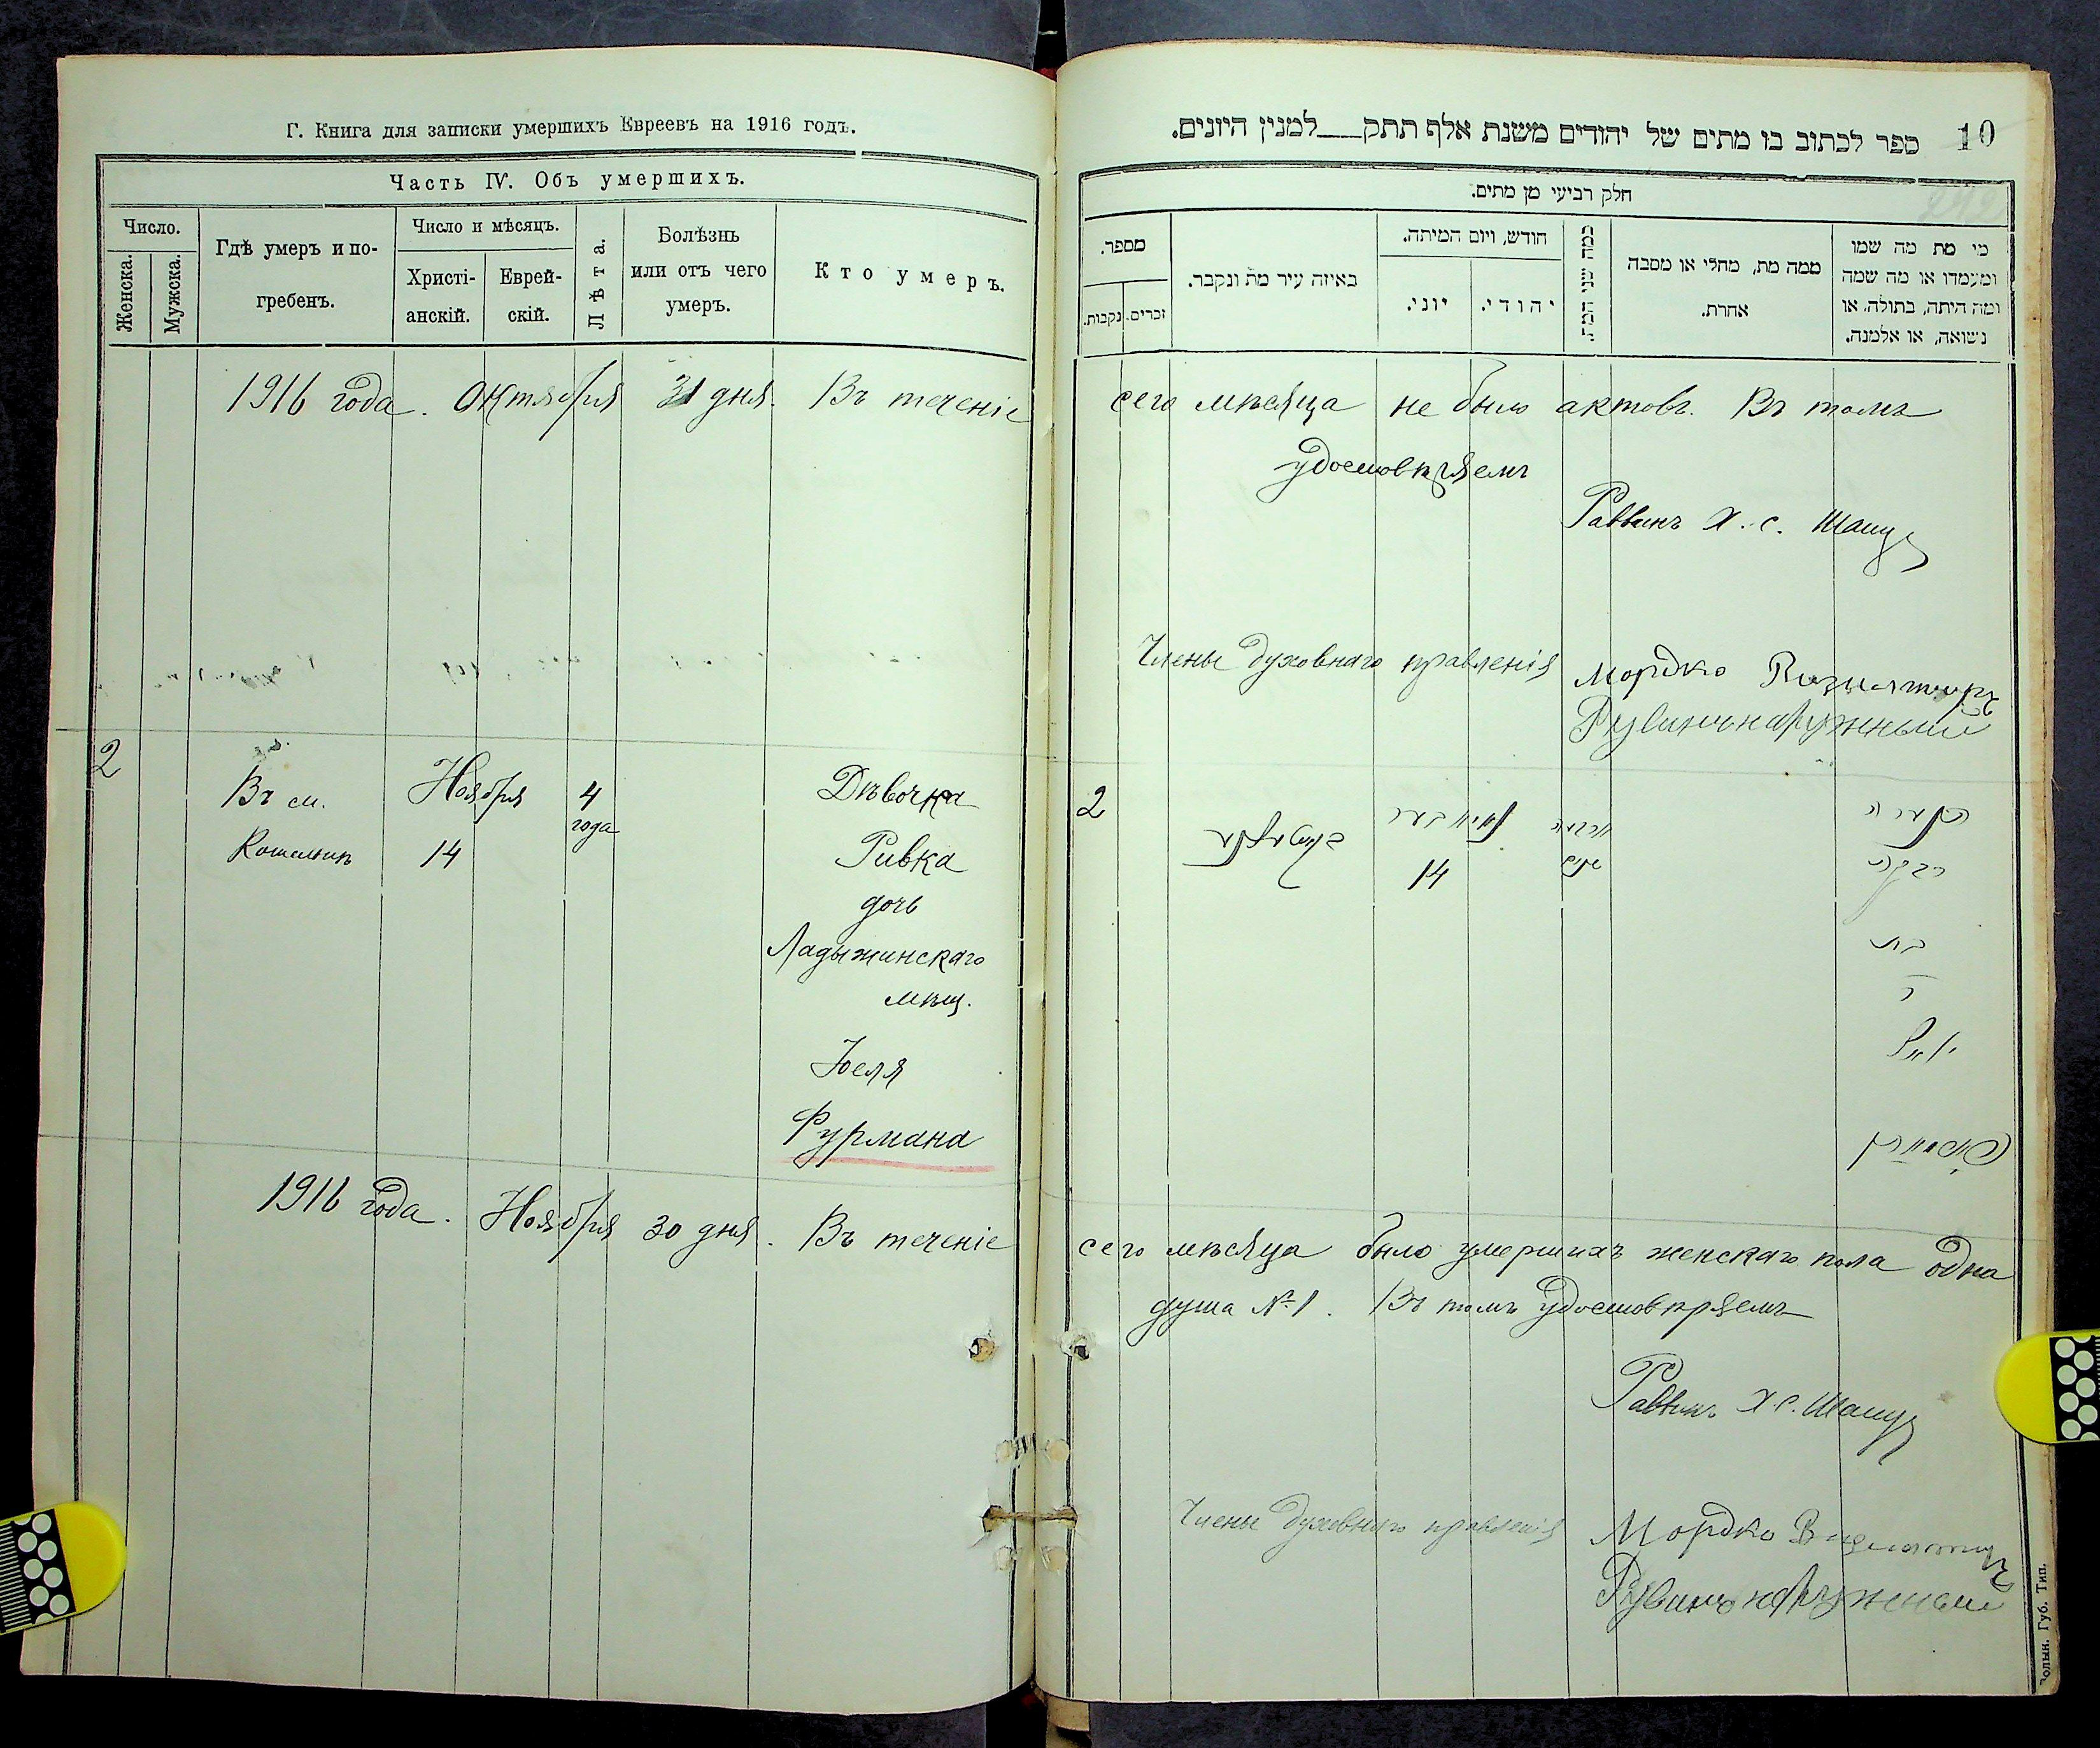 Г. Книга для записки умершихъ Евреевъ на 1916 годъ.
Часть IV. Объ умершихъ.
Число.
Женска.
Мужска.
Гдѣ умеръ и по-
гребенъ.
Число и мѣсяцъ.
Христі-
анскій.
Еврей-
скій.
Лѣта.
Болѣзнь
или отъ чего
умеръ.
Кто умеръ.
10
ספר לכתוב בו מתים של יהודים משנת אלף תתק___למנין היונים.
חלק רביעי מן מתים.
מספר.
זכרים.
נקבות.
באיזה עיר מת ונקבר.
חודש, ויום המיתה.
יוני.
יהודי.
כמה שני המת.
ממה מת, מחלי או מסבה
אחרת.
מי מת מה שמו
ומעמדו או מה שמה
ומה היתה, בתולה. או
נשואה, או אלמנה.
1916 года. Октября 31 дня. Въ теченіе сего мѣсяца не было актовъ. Въ томъ
удостовѣряемъ
Раввинъ Х. С.
Члены духовнаго правленія Мордко
Рувинъ наружный
2
Въ м.
Ноября
14
4
года
Дѣвочка
Ривка
дочь
Ладыжинскаго
мѣщ.
Іоеля
Фурмана
2
נאיאבער
14
ארבע
שנים
רבקה
בת
ר
יואל
פורמאן
1916 года. Ноября 30 дня. Въ теченіе сего мѣсяца было умершихъ женскаго пола одна
душа №1. Въ томъ удостовѣряемъ
Раввинъ Х. С.
Члены духовнаго правленія Мордко
Рувинъ наружный
Волын. Губ. Тип.